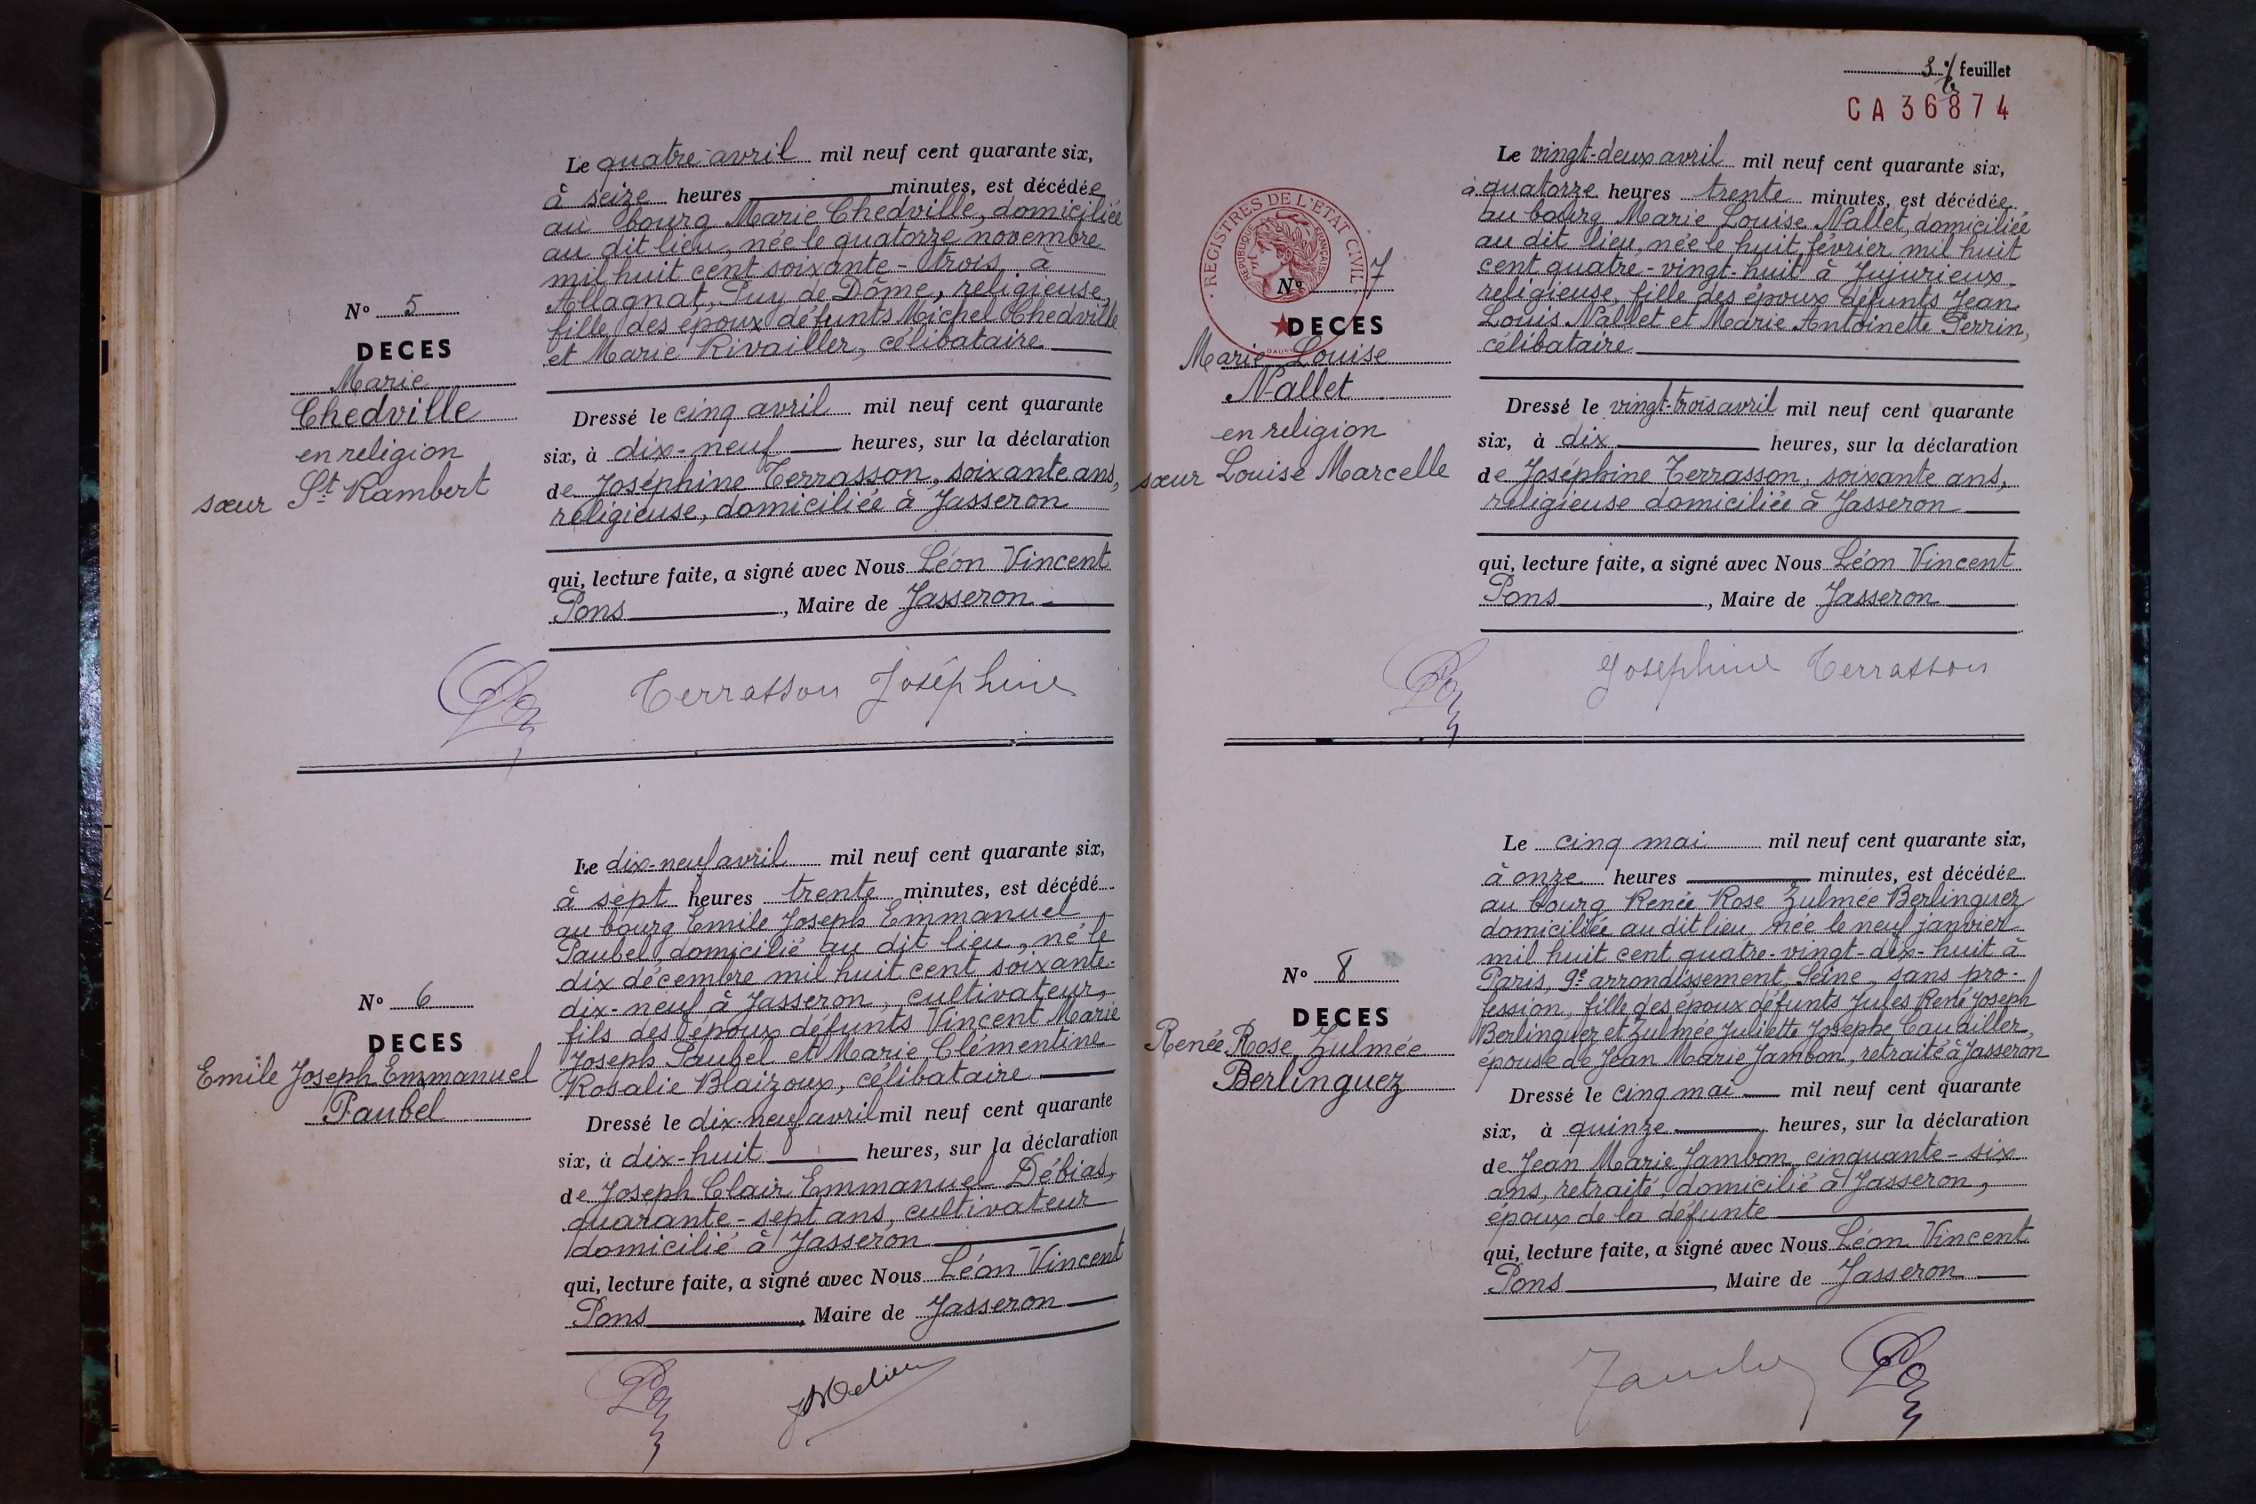 Le quatre avril mil neuf cent quarante six,
à seize heures minutes, est décédée
au bourg Marie Chedville, domiciliée
au dit lieu, née le quatorze novembre
mil huit cent soixante-trois à
Allagnat, Puy de Dôme, religieuse,
fille des époux défunts Michel Chedville
et Marie Rivailler, célibataire
N° 5
DECES
Marie
Chedville
en religion
sœur St Rambert
Dressé le cinq avril mil neuf cent quarante
six, à dix-neuf heures, sur la déclaration
de Joséphine Terrasson, soixante ans,
religieuse, domiciliée à Jasseron
qui, lecture faite, a signé avec Nous Léon Vincent
Pons, Maire de Jasseron
Terrasson Joséphine
Le dix-neuf avril mil neuf cent quarante six,
à sept heures trente minutes, est décédé
au bourg Emile Joseph Emmanuel
Paubel, domicilié au dit lieu, né le
dix décembre mil huit cent soixante-
dix-neuf à Jasseron, cultivateur,
fils des époux défunts Vincent Marie
Joseph Paubel et Marie Clémentine
Rosalie Blaizoux, célibataire
N° 6
DECES
Emile Joseph Emmanuel
Paubel
Dressé le dix-neuf avril mil neuf cent quarante
six, à dix-huit heures, sur la déclaration
de Joseph Clair Emmanuel Débias,
quarante-sept ans, cultivateur
domicilié à Jasseron
qui, lecture faite, a signé avec Nous Léon Vincent
Pons, Maire de Jasseron
feuillet
CA36874
Le vingt-deux avril mil neuf cent quarante six,
à quatorze heures trente minutes, est décédée
au bourg Marie Louise Nallet, domiciliée
au dit lieu, née le huit février mil huit
cent quatre-vingt-huit à Jujurieux
religieuse, fille des époux défunts Jean
Louis Nallet et Marie Antoinette Perrin,
célibataire
REGISTRES DE L'ETAT CIVIL
REPUBLIQUE FRANÇAISE
N° 7
DECES
Marie Louise
Nallet
en religion
sœur Louise Marcelle
Dressé le vingt-trois avril mil neuf cent quarante
six, à dix heures, sur la déclaration
de Joséphine Terrasson, soixante ans,
religieuse domiciliée à Jasseron
qui, lecture faite, a signé avec Nous Léon Vincent
Pons, Maire de Jasseron
Joséphine Terrasson
Le cinq mai mil neuf cent quarante six,
à onze heures minutes, est décédée
au bourg Renée Rose Zulmée Berlinguez
domiciliée au dit lieu née le neuf janvier
mil huit cent quatre-vingt-dix-huit à
Paris, 9e arrondissement, Seine, sans pro-
fession, fille des époux défunts Jules René Joseph
Berlinguez et Zulmée Juliette Josephe Caudiller,
épouse de Jean Marie Jambon, retraité à Jasseron
N° 8
DECES
Renée Rose Zulmée
Berlinguez
Dressé le cinq mai mil neuf cent quarante
six, à quinze heures, sur la déclaration
de Jean Marie Jambon, cinquante-six
ans, retraité, domicilié à Jasseron,
époux de la défunte
qui, lecture faite, a signé avec Nous Léon Vincent
Pons, Maire de Jasseron